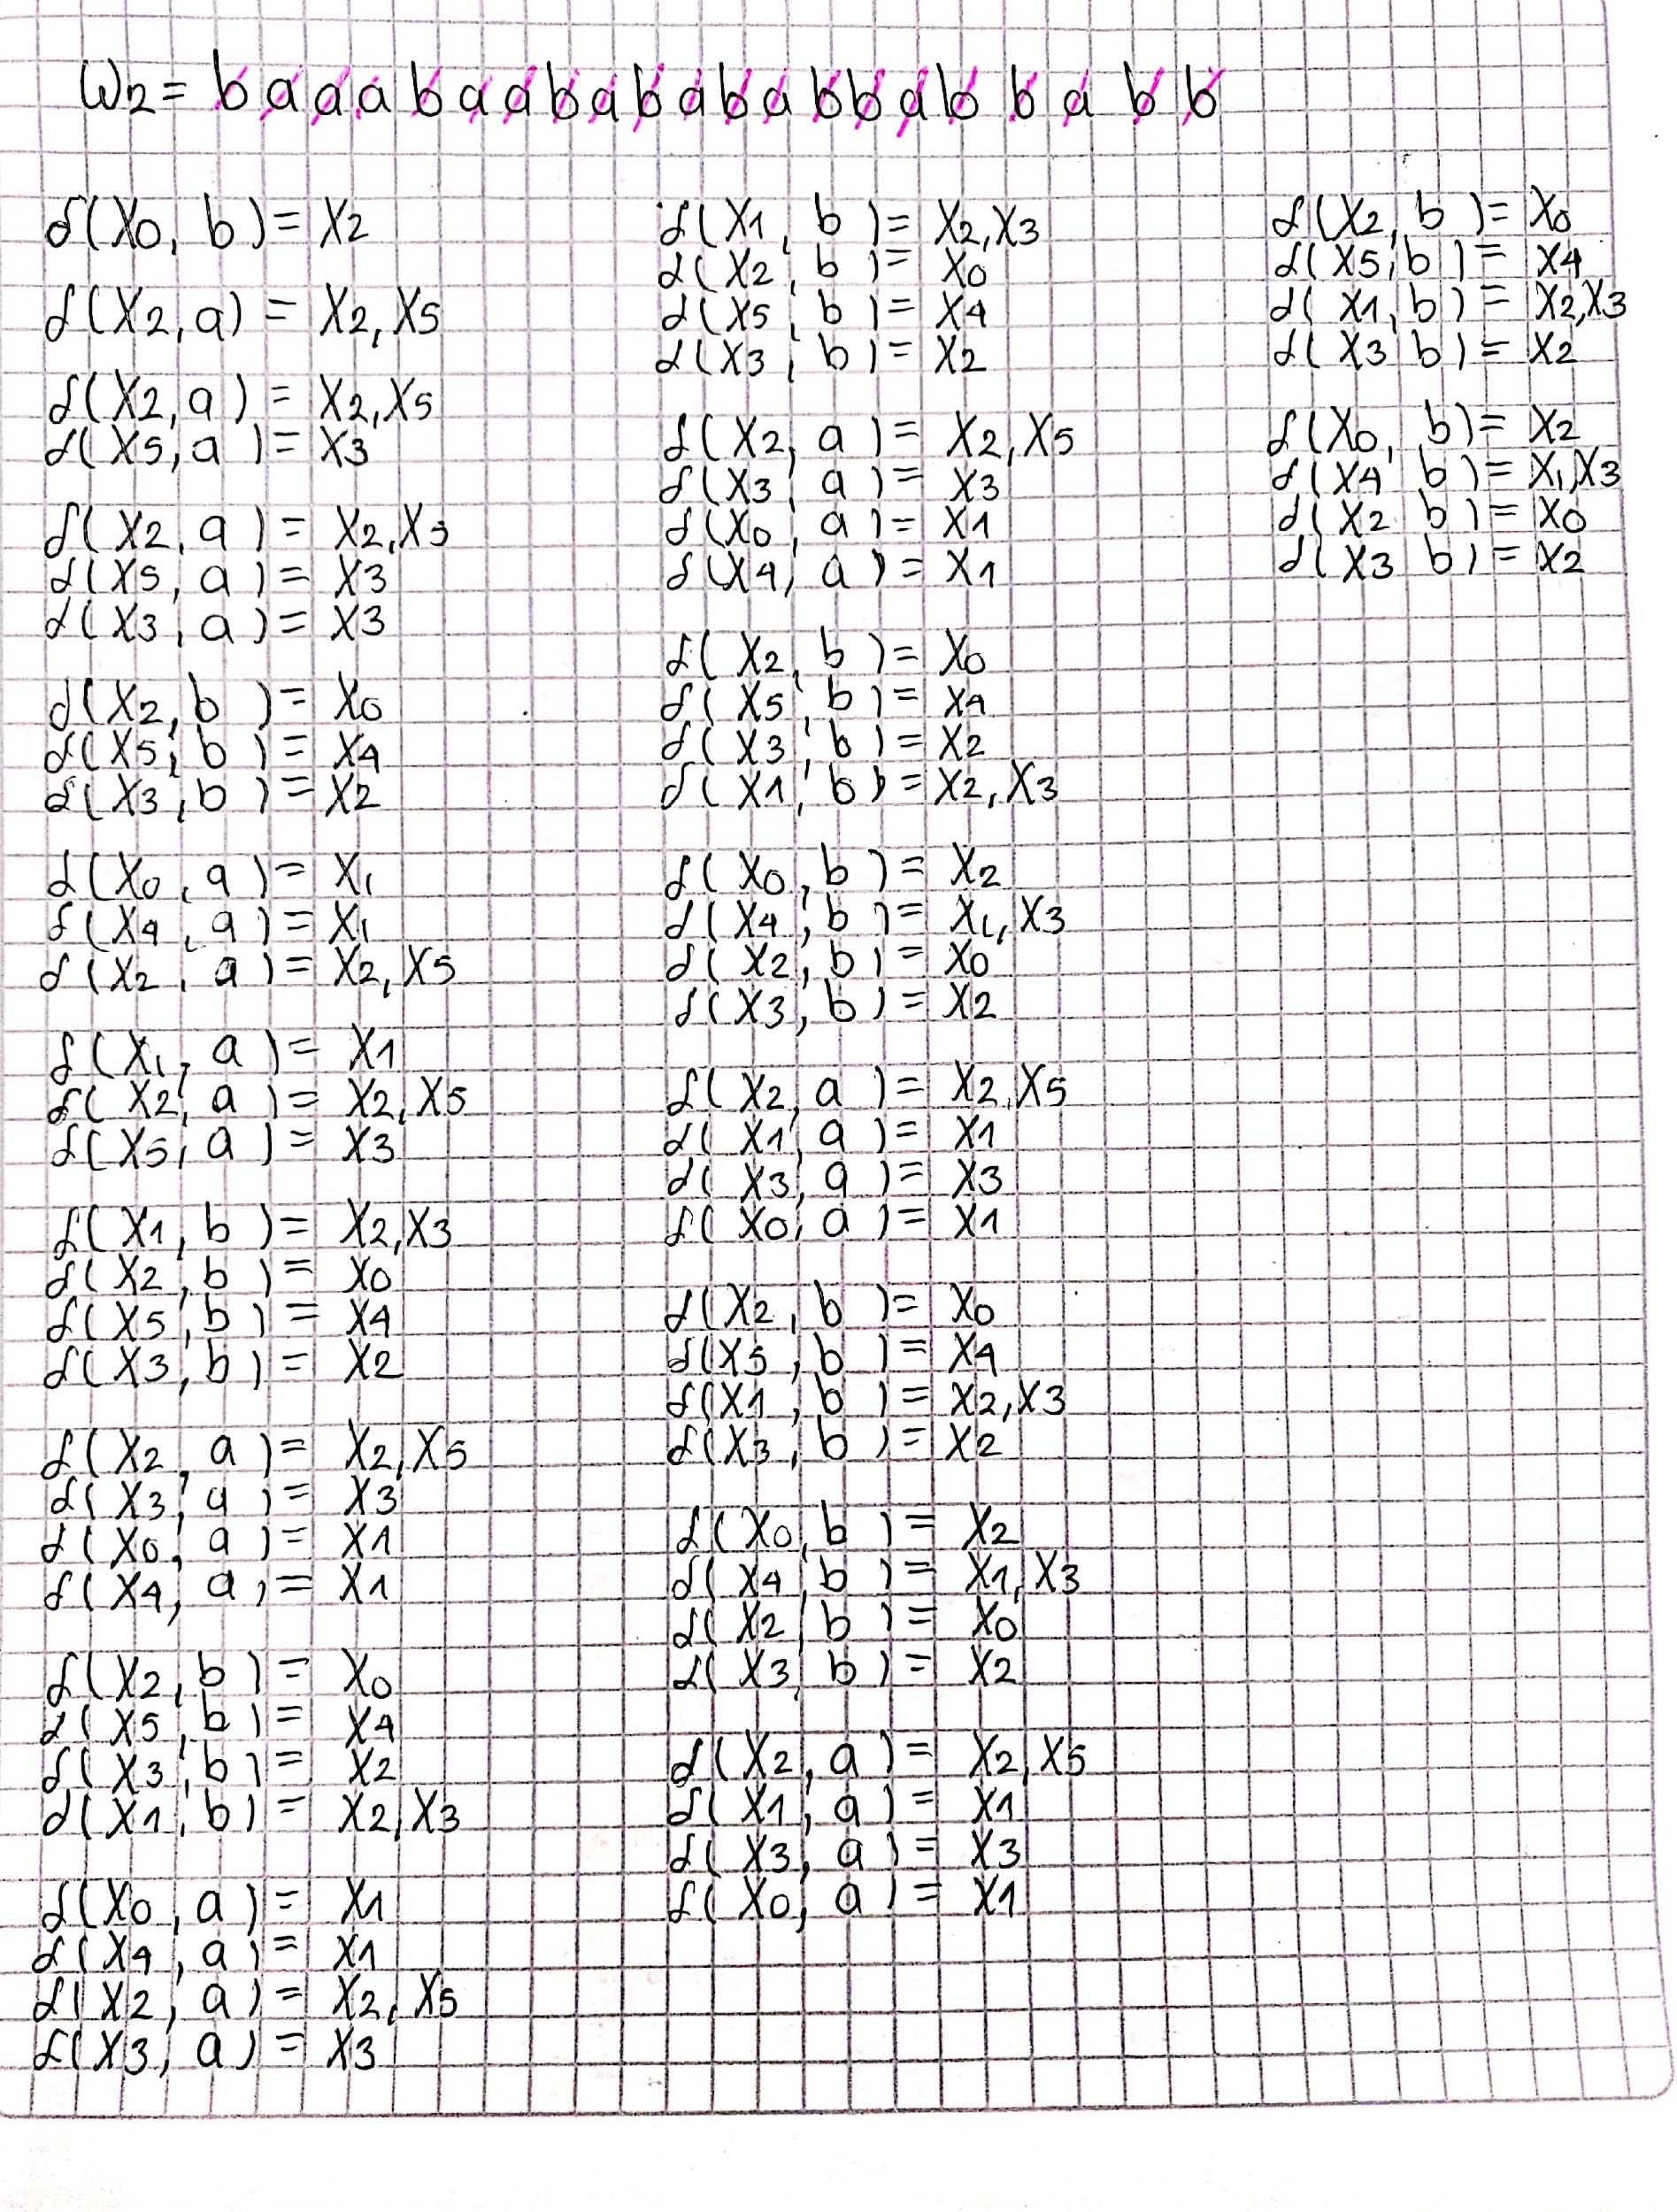 ω2 = b a a a b a a b a b a b a b b a b b a b b
δ(X0, b) = X2
δ(X2, a) = X2, X5
δ(X2, a) = X2, X5
δ(X5, a) = X3
δ(X2, a) = X2, X5
δ(X5, a) = X3
δ(X3, a) = X3
δ(X2, b) = X0
δ(X5, b) = X4
δ(X3, b) = X2
δ(X0, a) = X1
δ(X4, a) = X1
δ(X2, a) = X2, X5
δ(X1, a) = X1
δ(X2, a) = X2, X5
δ(X5, a) = X3
δ(X1, b) = X2, X3
δ(X2, b) = X0
δ(X5, b) = X4
δ(X3, b) = X2
δ(X2, a) = X2, X5
δ(X3, a) = X3
δ(X0, a) = X1
δ(X4, a) = X1
δ(X2, b) = X0
δ(X5, b) = X4
δ(X3, b) = X2
δ(X1, b) = X2, X3
δ(X0, a) = X1
δ(X4, a) = X1
δ(X2, a) = X2, X5
δ(X3, a) = X3
δ(X1, b) = X2, X3
δ(X2, b) = X0
δ(X5, b) = X4
δ(X3, b) = X2
δ(X2, a) = X2, X5
δ(X3, a) = X3
δ(X0, a) = X1
δ(X4, a) = X1
δ(X2, b) = X0
δ(X5, b) = X4
δ(X3, b) = X2
δ(X1, b) = X2, X3
δ(X0, b) = X2
δ(X4, b) = X1, X3
δ(X2, b) = X0
δ(X3, b) = X2
δ(X2, a) = X2, X5
δ(X1, a) = X1
δ(X3, a) = X3
δ(X0, a) = X1
δ(X2, b) = X0
δ(X5, b) = X4
δ(X1, b) = X2, X3
δ(X3, b) = X2
δ(X0, b) = X2
δ(X4, b) = X1, X3
δ(X2, b) = X0
δ(X3, b) = X2
δ(X2, a) = X2, X5
δ(X1, a) = X1
δ(X3, a) = X3
δ(X0, a) = X1
δ(X2, b) = X0
δ(X5, b) = X4
δ(X1, b) = X2, X3
δ(X3 b) = X2
δ(X0, b) = X2
δ(X4 b) = X1, X3
δ(X2 b) = X0
δ(X3 b) = X2